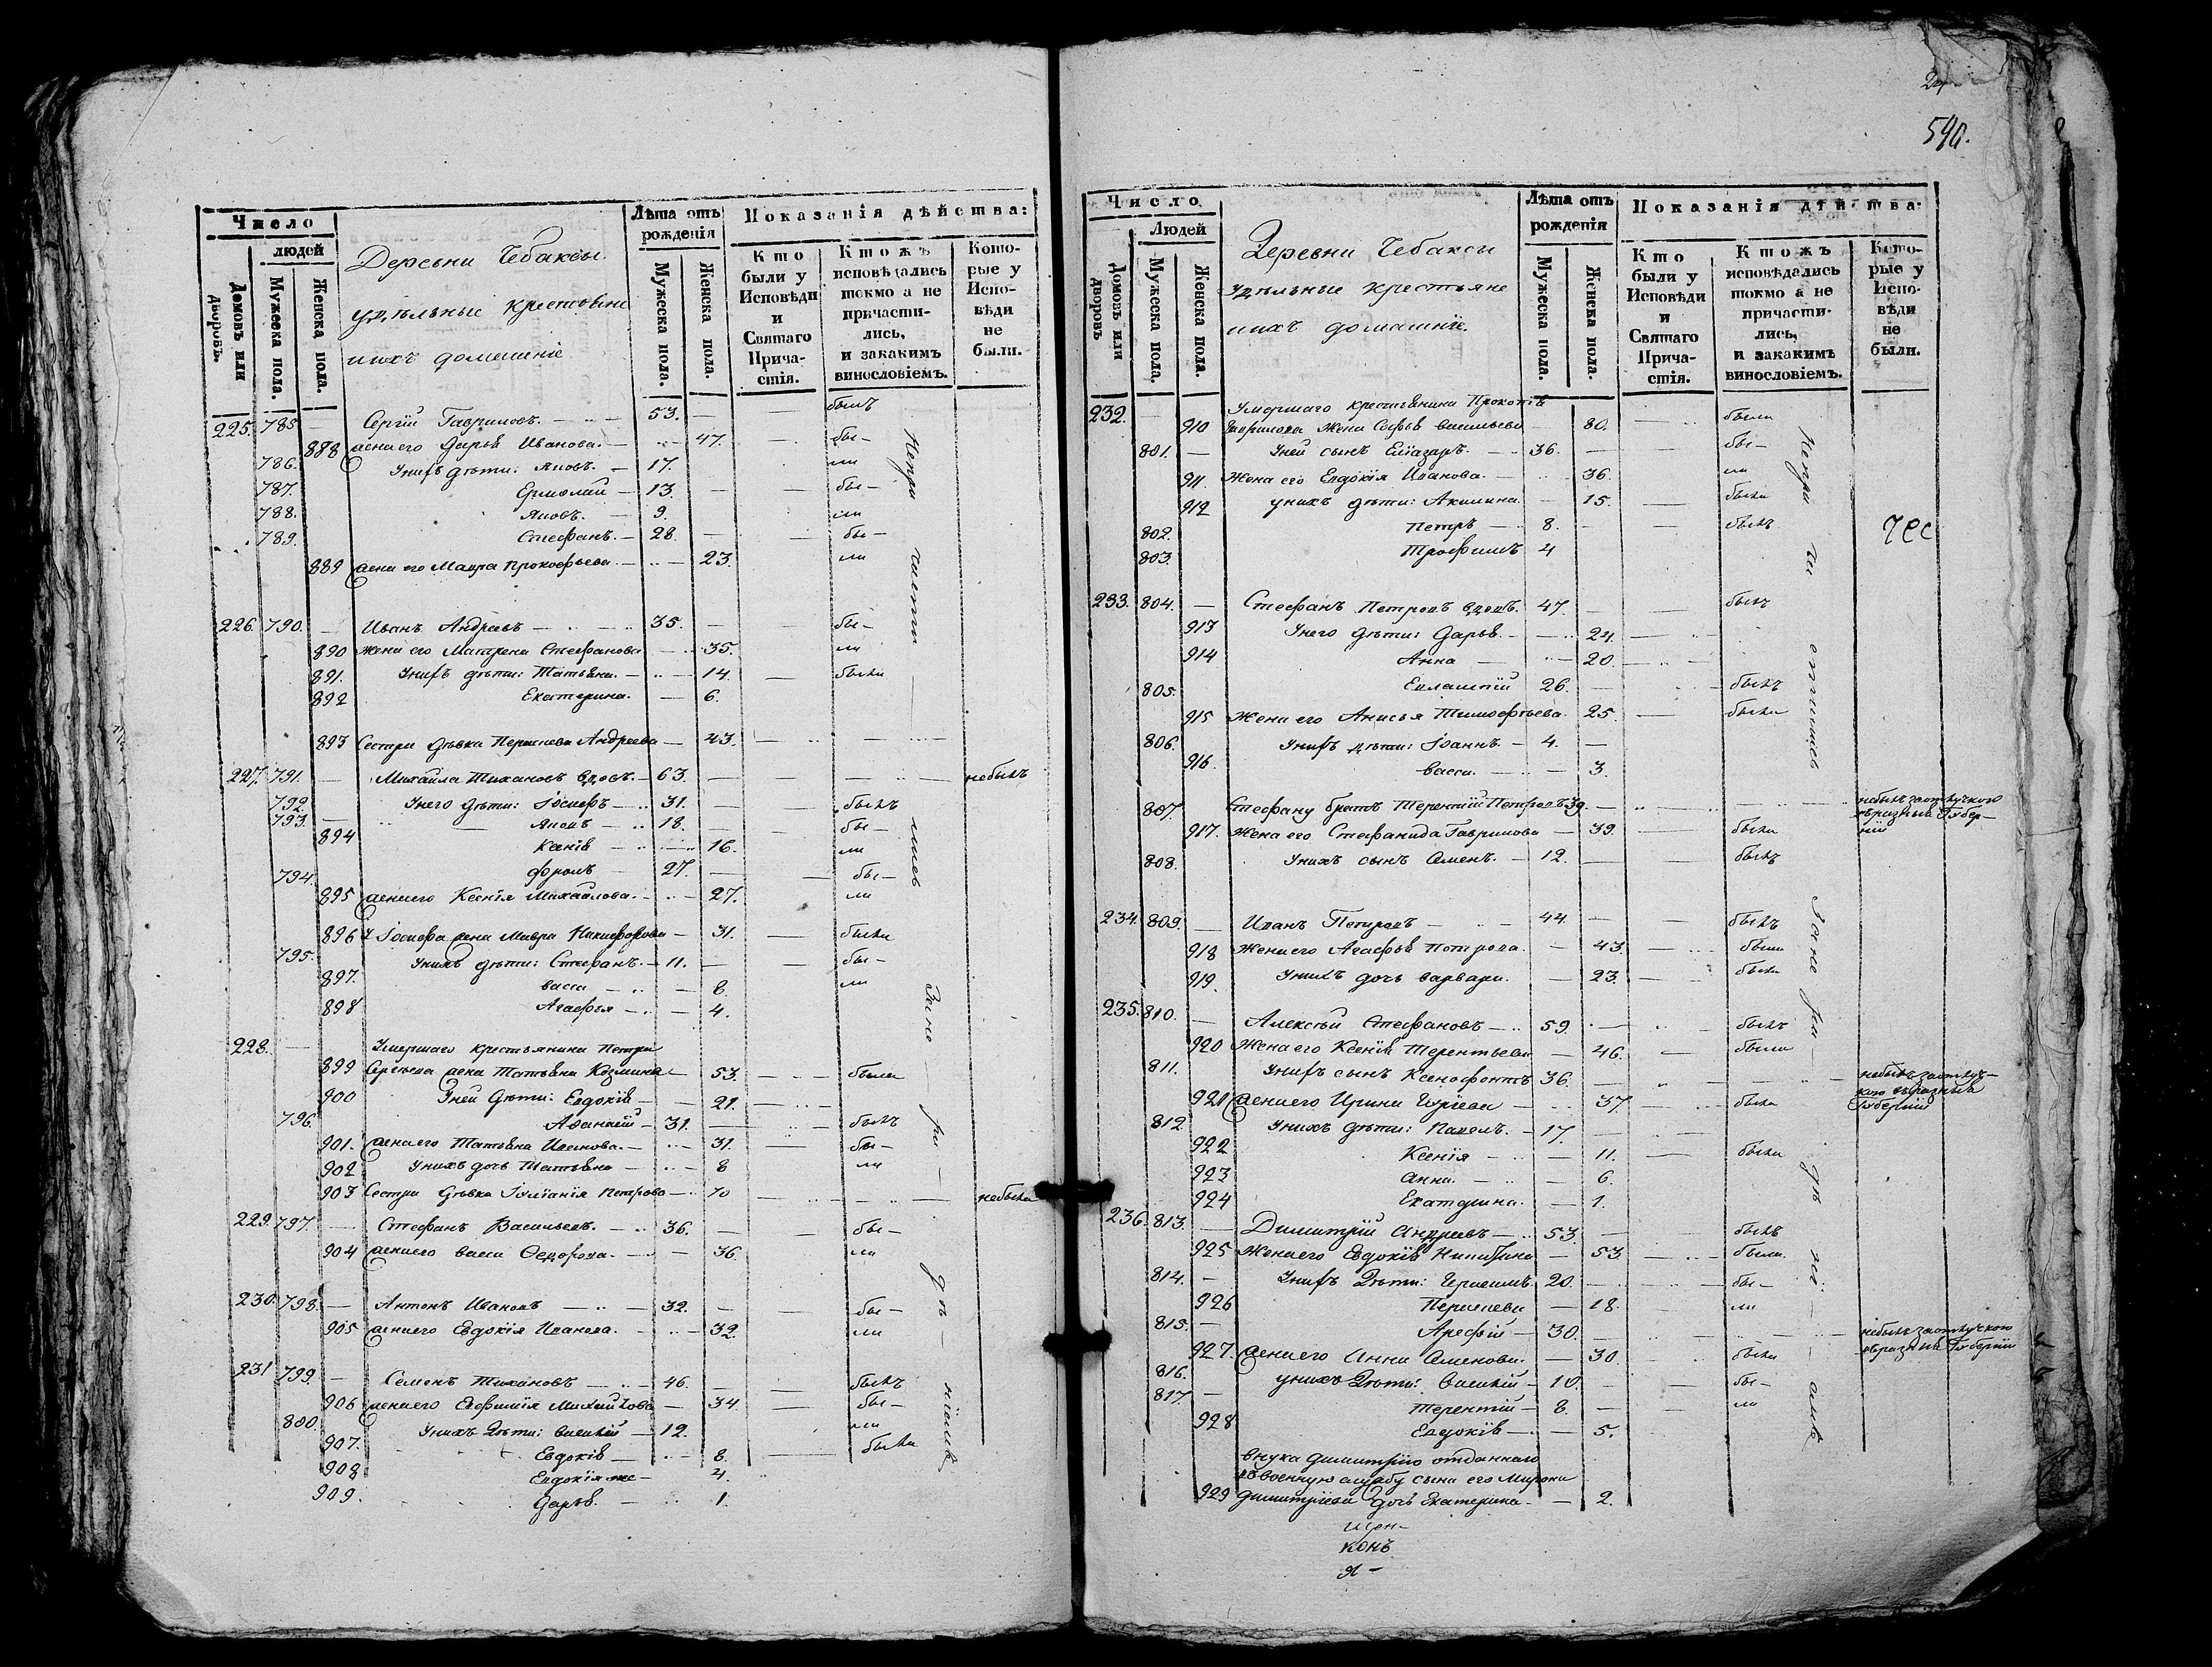 24
540.
Число
людей
Домовъ или дворовъ.
Мужеска пола.
Женска пола.
Деревни Чебаксы
удѣльные крестьяне
иихъ домашніе
Лѣта отъ рожденія
Мужеска пола.
Женска пола.
Показанія дѣйства:
Кто были у Исповѣди и Святаго Прича-стія.
Ктожъ исповѣдались токмо а не причасти-лись, и закакимъ винословіемъ.
Кото-рые у Испо-вѣди не были.
225. 785 — Сергій Гавриловъ. — 53. — былъ
888 жена его Дарья Иванова. — 47. — бы-
786. Унихъ дѣти: Яковъ. — 17. ли
787. Ермолай — 13. — бы-
788. Яковъ. — 9. ли
789. Стефанъ. — 28. — бы-
889 жена его Мавра Прокофьева. — 23. ли
226. 790. — Иванъ Андреевъ — 35. — бы-
890 жена его Матрена Стефанова — 35. ли
891. Унихъ дѣти: Татьяна. — 14. — были
892 Екатерина. — 6.
893 Сестра дѣвка Парасковья Андреева — 43.
227. 791. — Михайла Тихановъ вдовъ. — 63. — небылъ
792. Унего дѣти: Іосифъ — 31. — былъ
793. — Яковъ — 18. — бы-
894 Ксенія — 16. ли
794. фролъ — 27. — бы-
895 жена его Ксенія Михайлова. — 27. ли
896 У Іосифа жена Мавра Никифорова — 31. — были
795. Унихъ дѣти: Стефанъ. — 11. — бы-
897. васса — 8. ли
898 Агафья — 4.
228. — Умершаго крестьянина Петра
899 Сергѣева жена Татьяна Козмина — 53. — были
900 Уней Дѣти: Евдокія — 21.
796. Афанасій — 31. — былъ
901. жена его Татьяна Иванова. — 31. — бы-
902 Унихъ дочь Татьяна — 8 ли
903 Сестра дѣвка Іуліанія Петрова — 70 — небыла
229. 797. — Стефанъ Васильевъ. — 36. — бы-
904 жена его васса Федорова. — 36. ли
230. 798. — Антонъ Ивановъ — 32. — бы-
905 жена его Евдокія Иванова. — 32. ли
231 799. — Семенъ Тихановъ — 46. — былъ
906 жена его Евфимія Михайлова — 34 — бы-
800. Унихъ Дѣти: Василій — 12. ли
907. Евдокія — 8. — были
908 Евдокія же — 4.
909. Дарья. — 1.
Число
Людей
Домовъ или дворовъ
Мужеска пола.
Женска пола.
Деревни Чебаксы
Удѣльные крестьяне
иихъ домашніе
Лѣта отъ рожденія
Мужеска пола.
Женска пола.
Показанія дѣйства:
Кто были у Исповѣди и Святаго Прича-стія.
Ктожъ исповѣдались токмо а не причасти-лись, и закакимъ винословіемъ.
Кото-рые у Испо-вѣди не были.
232. — Умершаго крестьянина Прокопія
910 Гаврилова Жена Софья васильева — 80. — были
801. — Уней сынъ Еліазаръ. — 36. — бы-
911. Жена его Евдокія Иванова. — 36. ли
912 унихъ дѣти: Акилина. — 15. — были
802. Петръ — 8. — былъ
803. Трофимъ 4
233. 804. — Стефанъ Петровъ вдовъ. 47. — былъ
913 Унего дѣти: Дарья. — 24.
914 Анна — 20.
805. Евлампій 26. — былъ
915 Жена его Анисья Тимофѣева. 25. — были
806. Унихъ дѣти: Іоаннъ. — 4.
916. васса. — 3.
807. Стефану братъ Терентій Петровъ 39. — небылъ заотлучкою въразныя Губер-ніи
917. Жена его Стефанида Гаврилова — 39. — были
808. Унихъ сынъ Семенъ. — 12. — былъ
234. 809. — Иванъ Петровъ — 44. — былъ
918 Жена его Агафья Петрова. — 43. — были
919. Унихъ дочь варвара. — 23. — были
235. 810. — Алексѣй Стефановъ — 59. — былъ
920 Жена его Ксенія Терентьева — 46. — были
811. Унихъ сынъ Ксенофонтъ 36. — небылъ заотлуч-кою въразныя Губерніи
921 жена его Ирина Гурьева — 37 — были
812. Унихъ дѣти: Павелъ. — 17.
922 Ксенія — 11. — были
923 Анна. — 6.
924 Екатерина. — 1.
236. 813. — Димитрій Андреевъ — 53. — былъ
925 Жена его Евдокія Никитина — 53. — были.
814. — Унихъ Дѣти: Герасимъ. 20. — бы-
926 Парасковья — 18. ли
815. — Арефій — 30. — небылъ заотлучкою въразныя Губерніи
927. жена его Анна Семенова. — 30. — были
816. унихъ Дѣти: Василій — 10. — бы-
817. — Терентій — 8. — ли
928 Евдокія — 5.
внука Димитрію отданнаго
въвоенную службу сына его Мирона
929 Димитріева дочь Екатерина. — 2.